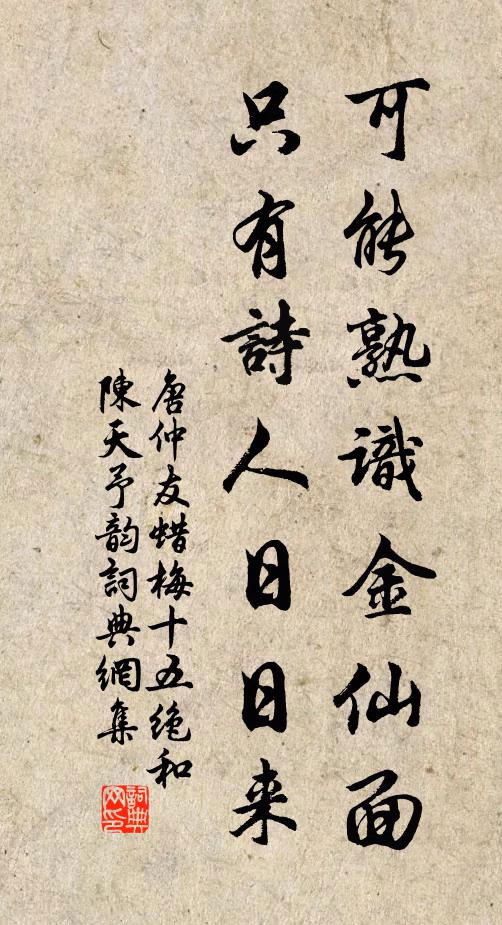 可能熟識金仙面
只有詩人日日来
唐仲友蜡梅十五绝和
陳天予韵詞典網集
詞典网印